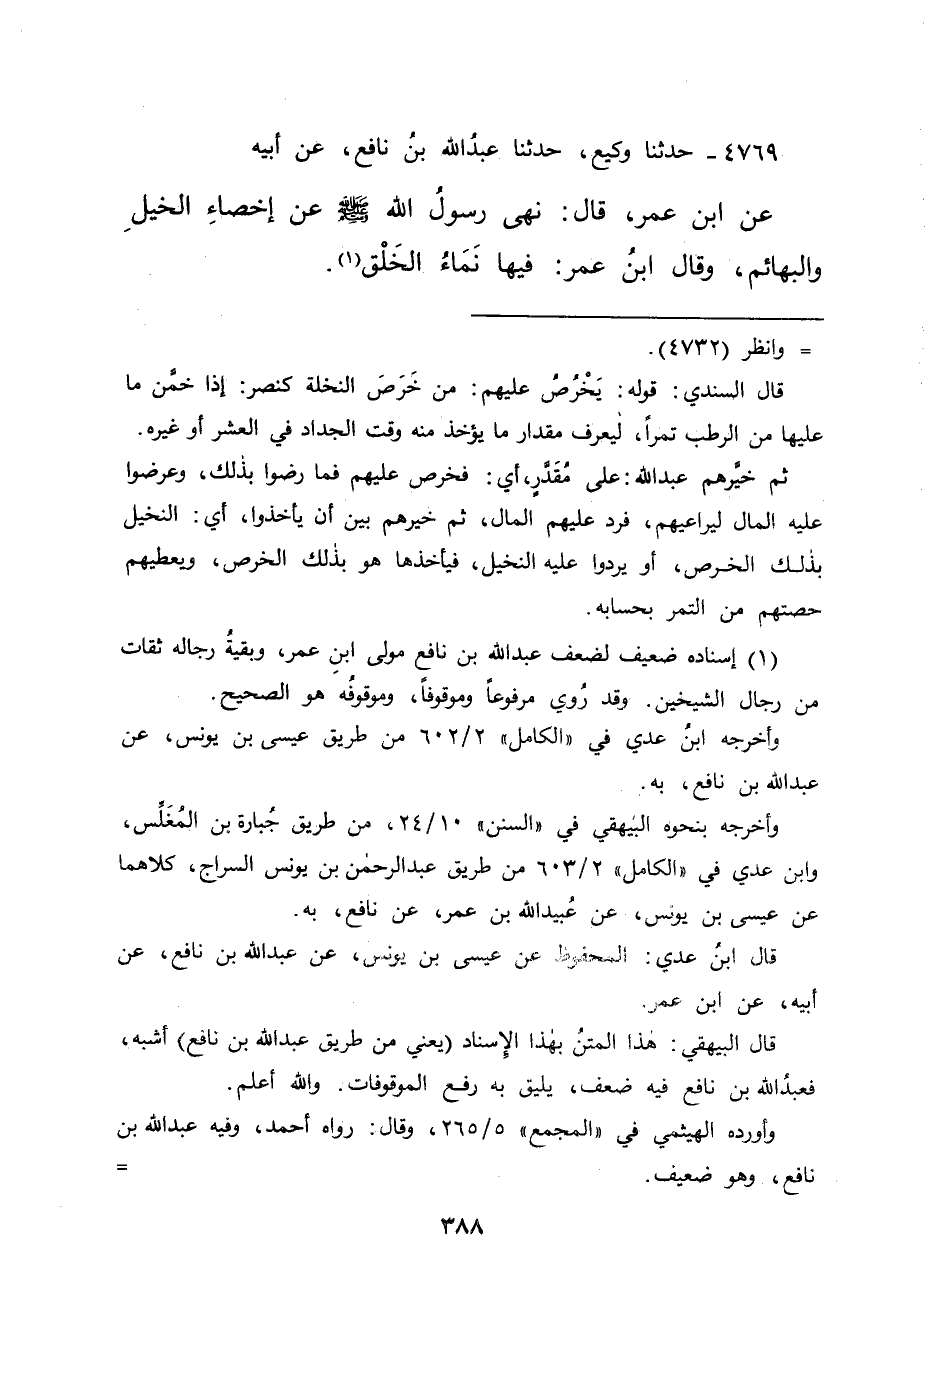 ٤٧٦٩ - حدثنا وكيع، حدثنا عبدُالله بنُ نافع، عن أبيه
عن ابن عمر، قال: نهى رسولُ الله ﷺ عن إخصاءِ الخيلِ
والبهائم، وقال ابنُ عمر: فيها نَمَاءُ الخَلْق(١).
= وانظر (٤٧٣٢).
قال السندي: قوله: يَخْرُصُ عليهم: من خَرَصَ النخلة كنصر: إذا خمَّن ما
عليها من الرطب تمراً، ليعرف مقدار ما يؤخذ منه وقت الجداد في العشر أو غيره.
ثم خيَّرهم عبدالله: على مُقَدَّرٍ، أي: فخرص عليهم فما رضوا بذلك، وعرضوا
عليه المال ليراعيهم، فرد عليهم المال، ثم خيرهم بين أن يأخذوا، أي: النخيل
بذلك الخرص، أو يردوا عليه النخيل، فيأخذها هو بذلك الخرص، ويعطيهم
حصتهم من التمر بحسابه.
(١) إسناده ضعيف لضعف عبدالله بن نافع مولى ابنِ عمر، وبقيةُ رجاله ثقات
من رجال الشيخين. وقد رُوي مرفوعاً وموقوفاً، وموقوفُه هو الصحيح.
وأخرجه ابنُ عدي في «الكامل» ٦٠٢/٢ من طريق عيسى بن يونس، عن
عبدالله بن نافع، به.
وأخرجه بنحوه البيهقي في «السنن» ٢٤/١٠، من طريق جُبارة بن المُغَلِّس،
وابن عدي في «الكامل» ٦٠٣/٢ من طريق عبدالرحمٰن بن يونس السراج، كلاهما
عن عيسى بن يونس، عن عُبيدالله بن عمر، عن نافع، به.
قال ابنُ عدي: المحفوظ عن عيسى بن يونس، عن عبدالله بن نافع، عن
أبيه، عن ابن عمر.
قال البيهقي: هٰذا المتنُ بهٰذا الإِسناد (يعني من طريق عبدالله بن نافع) أشبه،
فعبدُالله بن نافع فيه ضعف، يليق به رفع الموقوفات. والله أعلم.
وأورده الهيثمي في «المجمع» ٢٦٥/٥، وقال: رواه أحمد، وفيه عبدالله بن
نافع، وهو ضعيف. =
٣٨٨